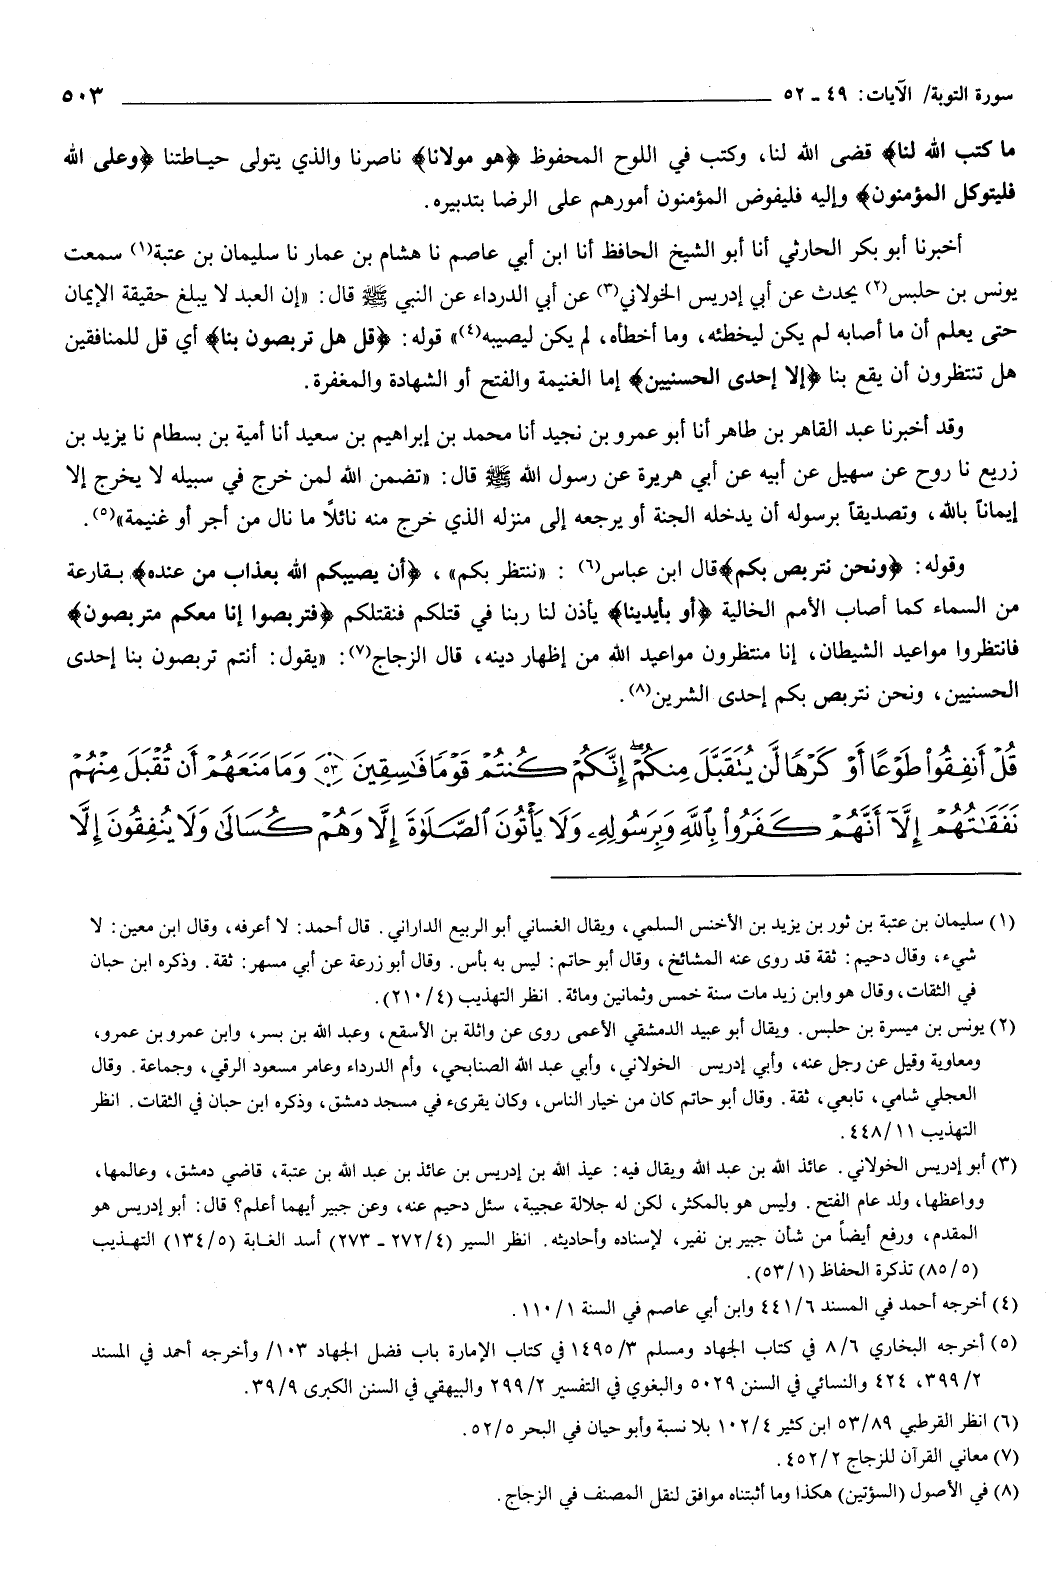 سورة التوبة/ الآيات: ٤٩ ـ ٥٢ ٥٠٣
ما كتب الله لنا﴾ قضى الله لنا، وكتب في اللوح المحفوظ ﴿هو مولانا﴾ ناصرنا والذي يتولى حياطتنا ﴿وعلى الله
فليتوكل المؤمنون﴾ وإليه فليفوض المؤمنون أمورهم على الرضا بتدبيره.
أخبرنا أبو بكر الحارثي أنا أبو الشيخ الحافظ أنا ابن أبي عاصم نا هشام بن عمار نا سليمان بن عتبة(١) سمعت
يونس بن حلبس(٢) يحدث عن أبي إدريس الخولاني(٣) عن أبي الدرداء عن النبي ﷺ قال: «إن العبد لا يبلغ حقيقة الإيمان
حتى يعلم أن ما أصابه لم يكن ليخطئه، وما أخطأه، لم يكن ليصيبه(٤)» قوله: ﴿قل هل تربصون بنا﴾ أي قل للمنافقين
هل تنتظرون أن يقع بنا ﴿إلا إحدى الحسنيين﴾ إما الغنيمة والفتح أو الشهادة والمغفرة.
وقد أخبرنا عبد القاهر بن طاهر أنا أبو عمرو بن نجيد أنا محمد بن إبراهيم بن سعيد أنا أمية بن بسطام نا يزيد بن
زريع نا روح عن سهيل عن أبيه عن أبي هريرة عن رسول الله ﷺ قال: «تضمن الله لمن خرج في سبيله لا يخرج إلا
إيماناً بالله، وتصديقاً برسوله أن يدخله الجنة أو يرجعه إلى منزله الذي خرج منه نائلاً ما نال من أجر أو غنيمة»(٥).
وقوله: ﴿ونحن نتربص بكم﴾قال ابن عباس(٦) : «ننتظر بكم»، ﴿أن يصيبكم الله بعذاب من عنده﴾ بقارعة
من السماء كما أصاب الأمم الخالية ﴿أو بأيدينا﴾ يأذن لنا ربنا في قتلكم فنقتلكم ﴿فتربصوا إنا معكم متربصون﴾
فانتظروا مواعيد الشيطان، إنا منتظرون مواعيد الله من إظهار دينه، قال الزجاج(٧): «يقول: أنتم تربصون بنا إحدى
الحسنيين، ونحن نتربص بكم إحدى الشرين(٨).
قُلْ أَنفِقُوا۟ طَوْعًا أَوْ كَرْهًا لَّن يُتَقَبَّلَ مِنكُمْ ۖ إِنَّكُمْ كُنتُمْ قَوْمًا فَـٰسِقِينَ ﴿٥٣﴾ وَمَا مَنَعَهُمْ أَن تُقْبَلَ مِنْهُمْ
نَفَقَـٰتُهُمْ إِلَّآ أَنَّهُمْ كَفَرُوا۟ بِٱللَّهِ وَبِرَسُولِهِۦ وَلَا يَأْتُونَ ٱلصَّلَوٰةَ إِلَّا وَهُمْ كُسَالَىٰ وَلَا يُنفِقُونَ إِلَّا
(١) سليمان بن عتبة بن ثور بن يزيد بن الأخنس السلمي، ويقال الغساني أبو الربيع الداراني. قال أحمد: لا أعرفه، وقال ابن معين: لا
شيء، وقال دحيم: ثقة قد روى عنه المشائخ، وقال أبو حاتم: ليس به بأس. وقال أبو زرعة عن أبي مسهر: ثقة. وذكره ابن حبان
في الثقات، وقال هو وابن زيد مات سنة خمس وثمانين ومائة. انظر التهذيب (٢١٠/٤).
(٢) يونس بن ميسرة بن حلبس. ويقال أبو عبيد الدمشقي الأعمى روى عن واثلة بن الأسقع، وعبد الله بن بسر، وابن عمرو بن عمرو،
ومعاوية وقيل عن رجل عنه، وأبي إدريس الخولاني، وأبي عبد الله الصنابحي، وأم الدرداء وعامر مسعود الرقي، وجماعة. وقال
العجلي شامي، تابعي، ثقة. وقال أبو حاتم كان من خيار الناس، وكان يقرىء في مسجد دمشق، وذكره ابن حبان في الثقات. انظر
التهذيب ٤٤٨/١١.
(٣) أبو إدريس الخولاني. عائذ الله بن عبد الله ويقال فيه: عيذ الله بن إدريس بن عائذ بن عبد الله بن عتبة، قاضي دمشق، وعالمها،
وواعظها، ولد عام الفتح. وليس هو بالمكثر، لكن له جلالة عجيبة، سئل دحيم عنه، وعن جبير أيهما أعلم؟ قال: أبو إدريس هو
المقدم، ورفع أيضاً من شأن جبير بن نفير، لإسناده وأحاديثه. انظر السير (٢٧٢/٤ ـ ٢٧٣) أسد الغابة (١٣٤/٥) التهذيب
(٨٥/٥) تذكرة الحفاظ (٥٣/١).
(٤) أخرجه أحمد في المسند ٤٤١/٦ وابن أبي عاصم في السنة ١١٠/١.
(٥) أخرجه البخاري ٨/٦ في كتاب الجهاد ومسلم ١٤٩٥/٣ في كتاب الإمارة باب فضل الجهاد ١٠٣/ وأخرجه أحمد في المسند
٣٩٩/٢، ٤٢٤ والنسائي في السنن ٥٠٢٩ والبغوي في التفسير ٢٩٩/٢ والبيهقي في السنن الكبرى ٣٩/٩.
(٦) انظر القرطبي ٥٣/٨٩ ابن كثير ١٠٢/٤ بلا نسبة وأبو حيان في البحر ٥٢/٥.
(٧) معاني القرآن للزجاج ٤٥٢/٢.
(٨) في الأصول (السؤتين) هكذا وما أثبتناه موافق لنقل المصنف في الزجاج.